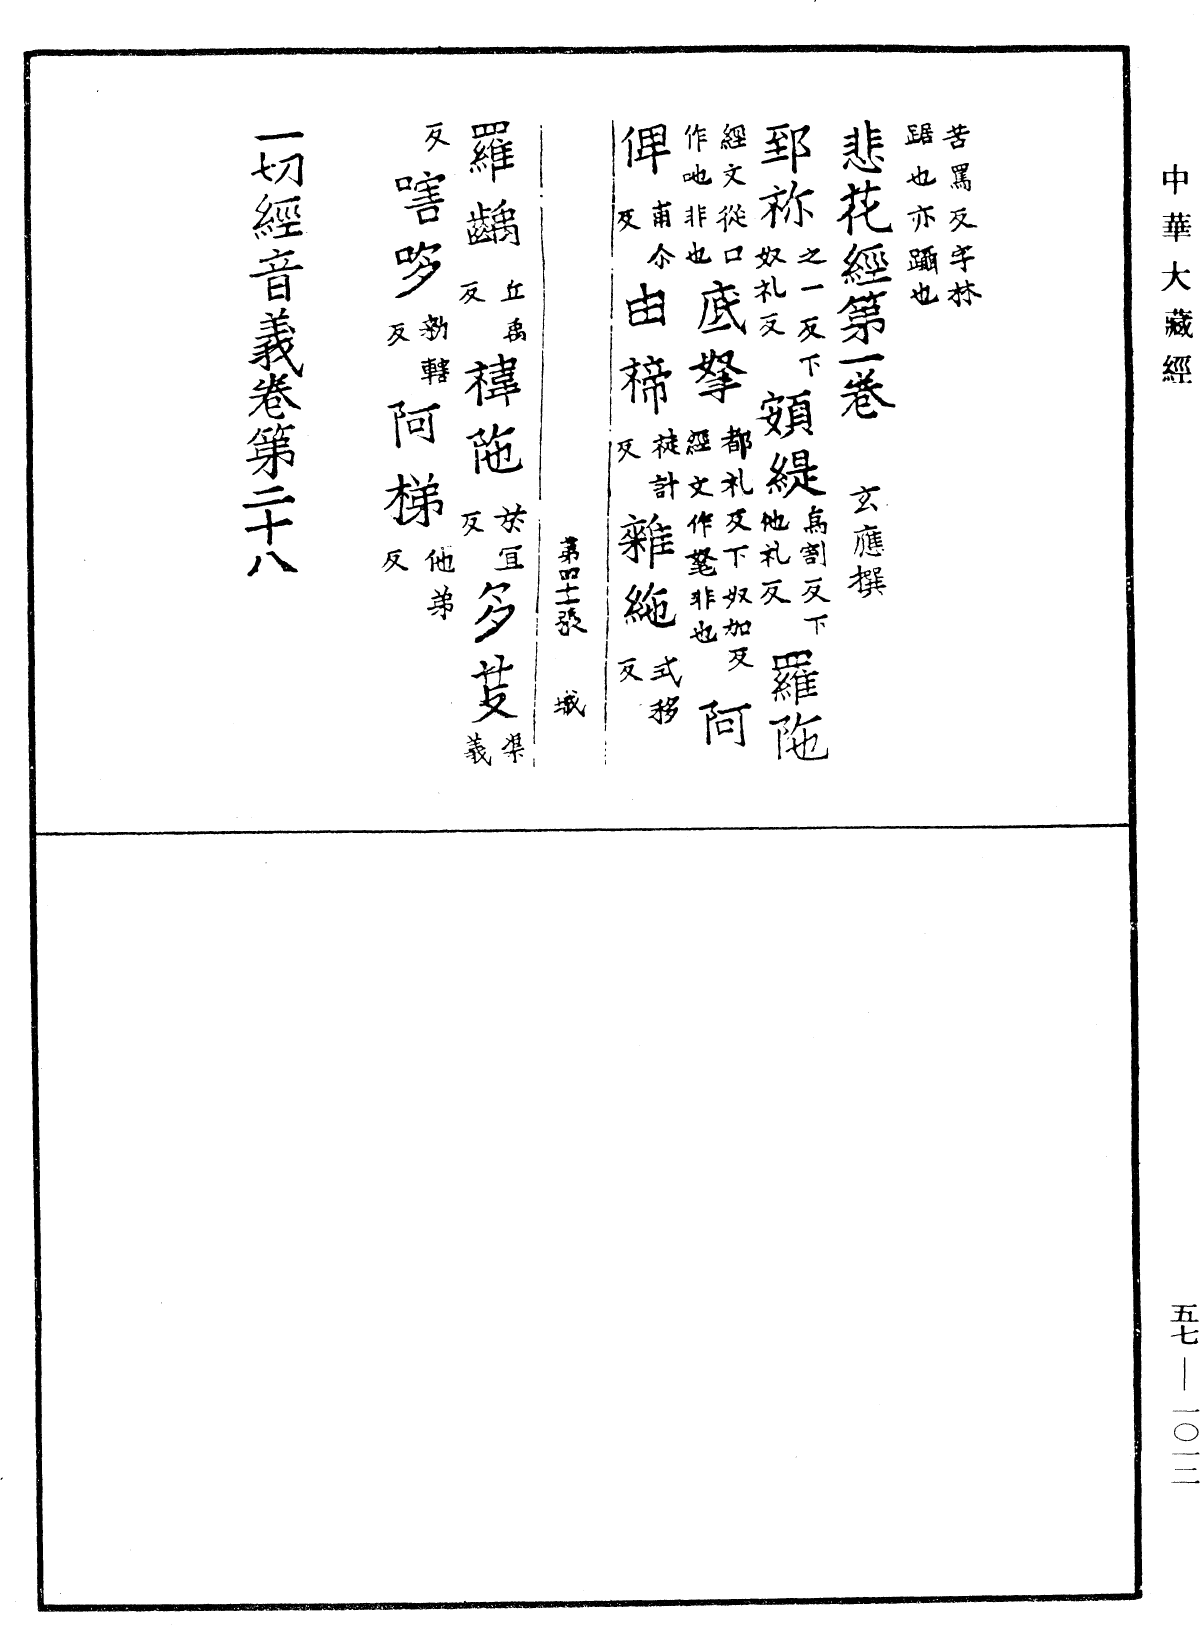 中華大藏經
苦罵反字林
踞也亦躡也
悲花經第一卷 玄應撰
郅祢之一反下奴礼反頞緹烏割反下他礼反羅陁
經文從口作吔非也底拏都礼反下奴加反經文作毦非也阿
俾甫尒反由㮛徒計反雜絁式移反
第四十一張 城
羅齲丘禹反褘陁於冝反多芰渠義
反㗇哆新轄反阿梯他弟反
一切經音義卷第二十八
五七—一〇一二